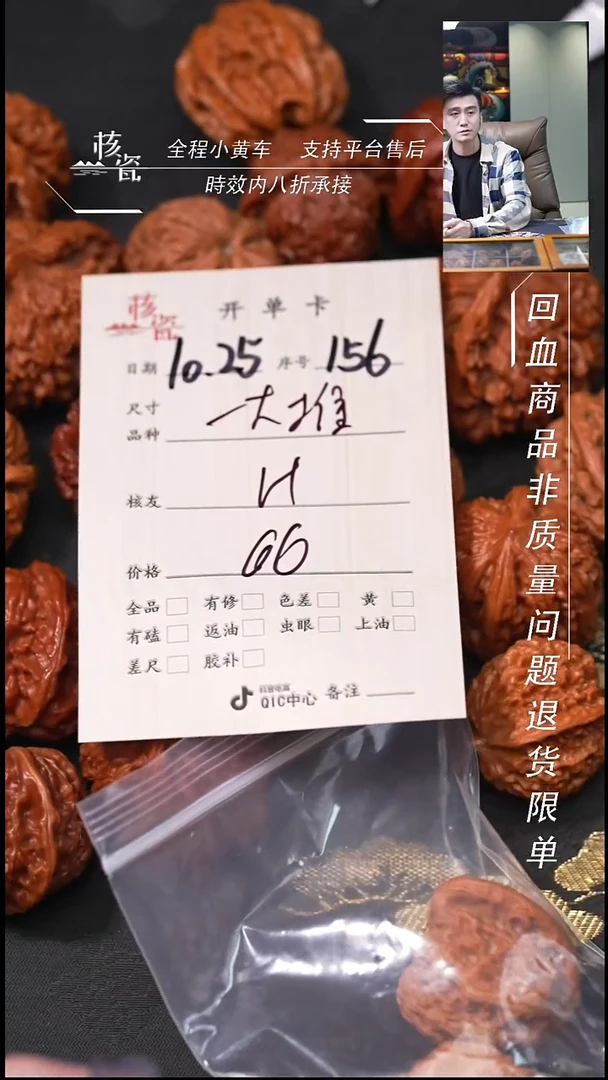 核瓷
全程小黄车 支持平台售后
時效内八折承接
回血商品非质量问题退货限单
核瓷
开单卡
日期 10.25 序号 156
尺寸
品种 一大堆
核友
价格 66
全品 有修 色差 黄
有磕 返油 虫眼 上油
差尺 胶补
抖音电商
QIC中心 备注